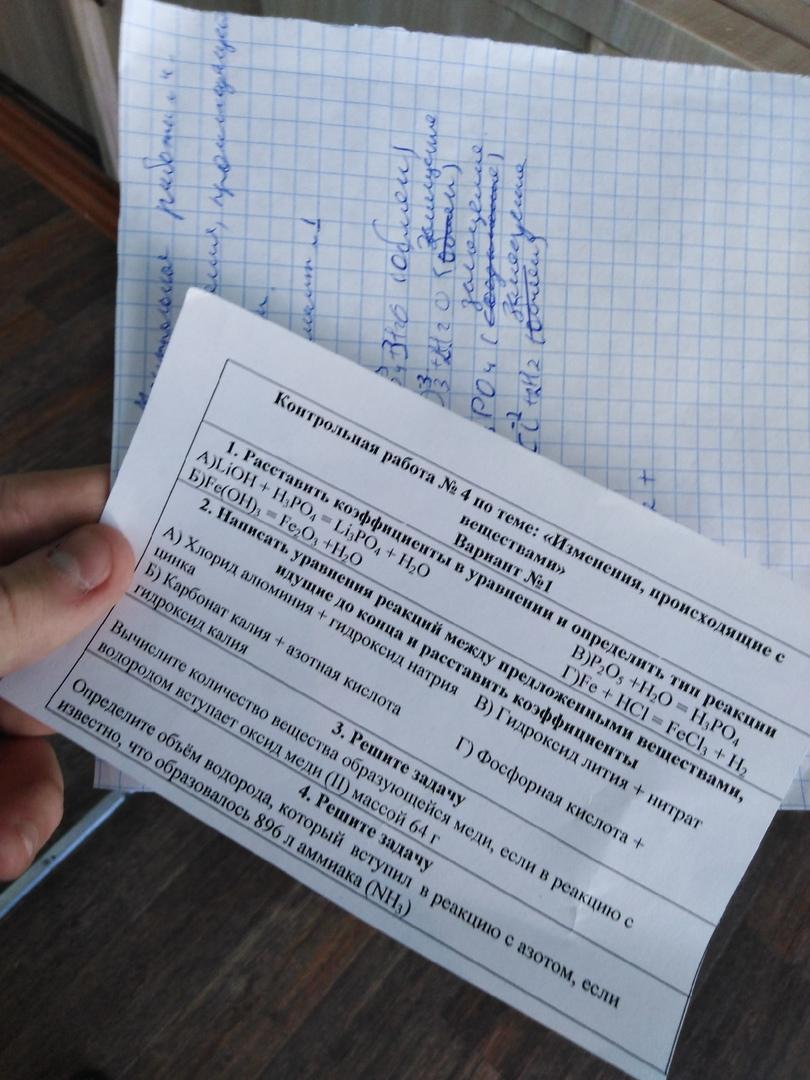 Контрольная работа № 4 по теме: «Изменения, происходящие с
веществами»
Вариант №1
1. Расставить коэффициенты в уравнении и определить тип реакции
А)LiOH + H₃PO₄ = Li₃PO₄ + H₂O
В)P₂O₅ +H₂O = H₃PO₄
Б)Fe(OH)₃ = Fe₂O₃ +H₂O
Г)Fe + HCl = FeCl₃ + H₂
2. Написать уравнения реакций между предложенными веществами,
идущие до конца и расставить коэффициенты
А) Хлорид алюминия + гидроксид натрия
В) Гидроксид лития + нитрат
цинка
Б) Карбонат калия + азотная кислота
Г) Фосфорная кислота +
гидроксид калия
3. Решите задачу
Вычислите количество вещества образующейся меди, если в реакцию с
водородом вступает оксид меди (II) массой 64 г
4. Решите задачу
Определите объём водорода, который вступил в реакцию с азотом, если
известно, что образовалось 896 л аммиака (NH₃)
работа
(обмен)
замещение
PO4
замещение
замещение